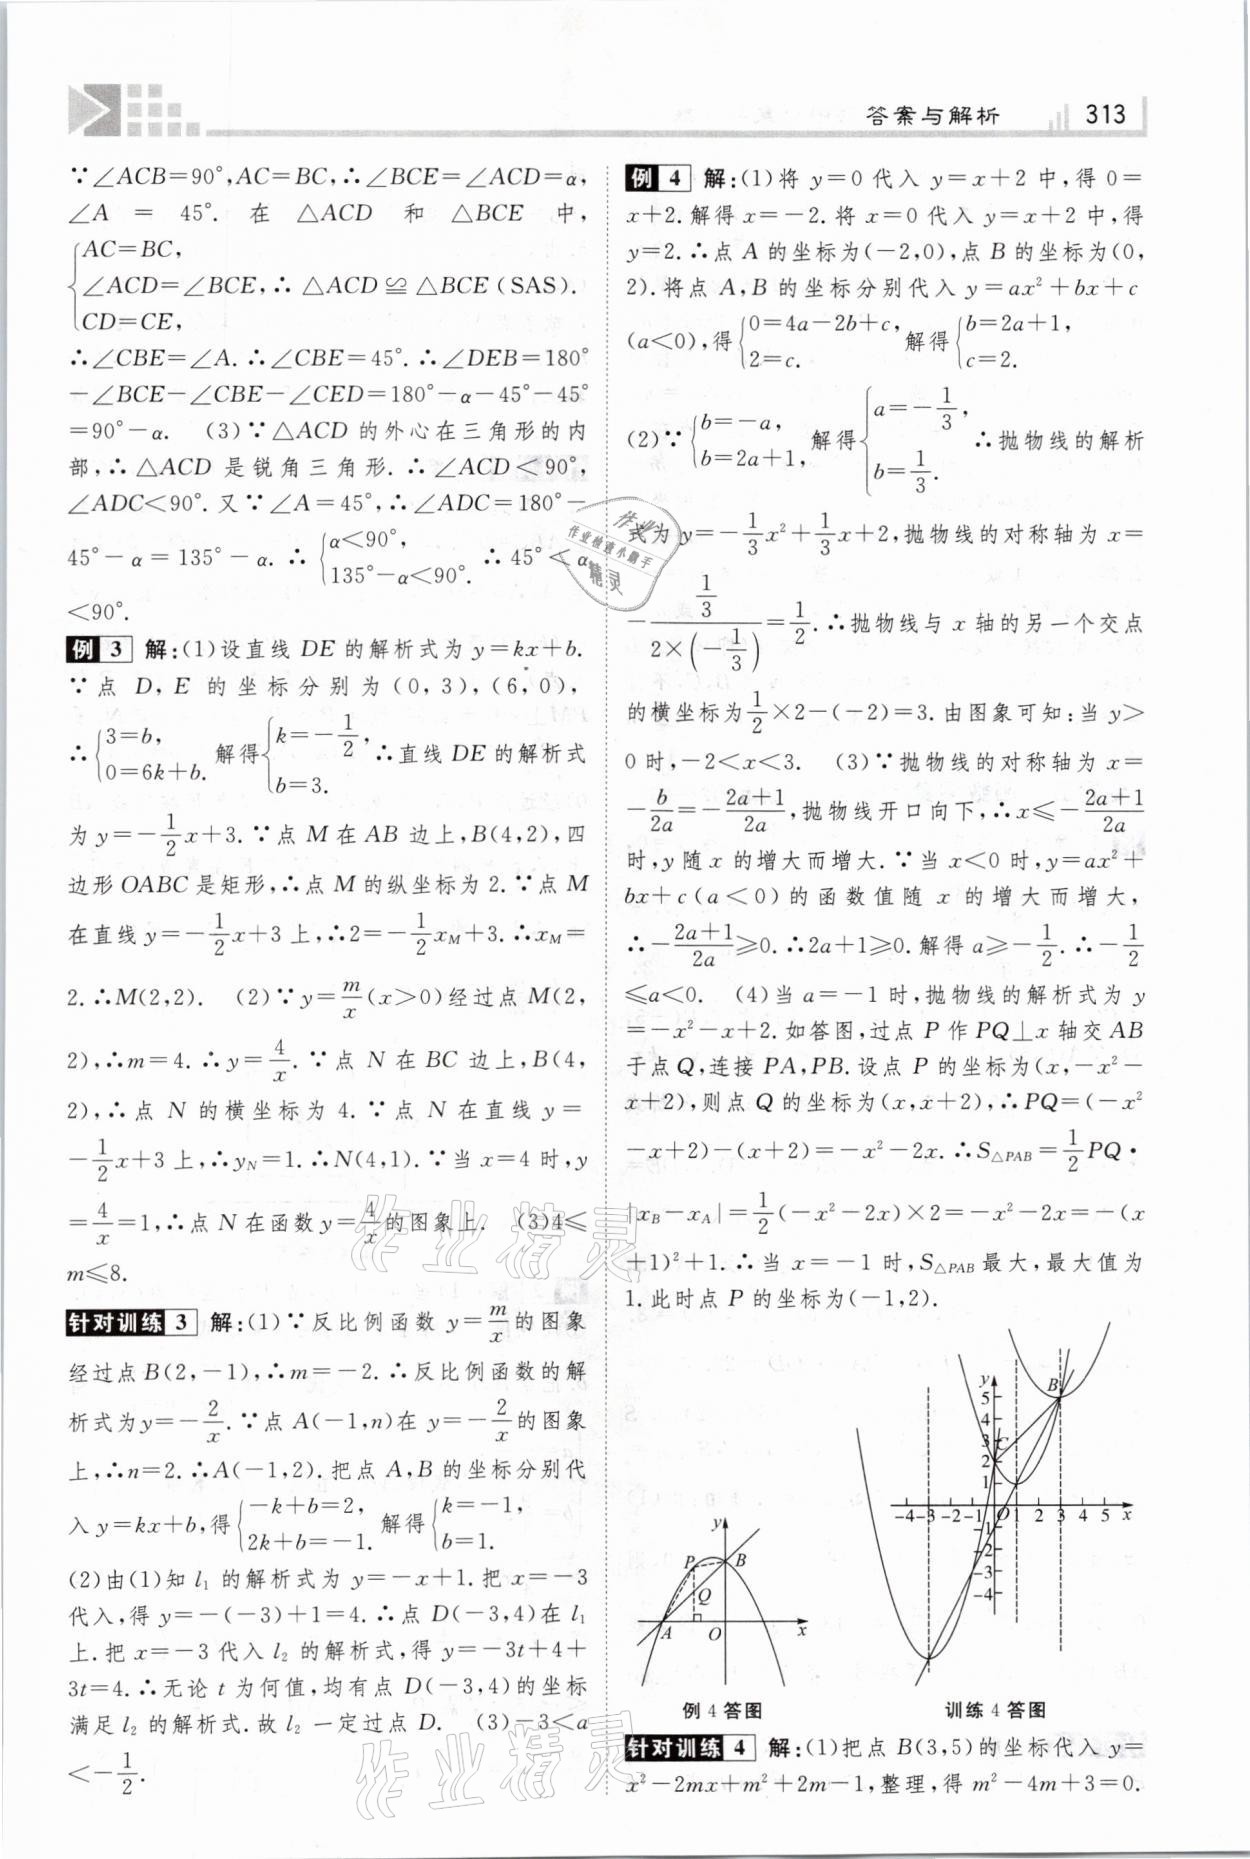 答案与解析 313
∵∠ACB=90°,AC=BC,∴∠BCE=∠ACD=α,
∠A = 45°. 在 △ACD 和 △BCE 中,
{AC=BC,
∠ACD=∠BCE,∴△ACD≌△BCE(SAS).
CD=CE,
∴∠CBE=∠A.∴∠CBE=45°.∴∠DEB=180°
-∠BCE-∠CBE-∠CED=180°-α-45°-45°
=90°-α. (3)∵△ACD的外心在三角形的内
部,∴△ACD是锐角三角形.∴∠ACD<90°,
∠ADC<90°.又∵∠A=45°,∴∠ADC=180°-
45°-α=135°-α.∴{α<90°, 135°-α<90°. ∴45°<α
<90°.
例 3 解:(1)设直线DE的解析式为y=kx+b.
∵点 D,E 的坐标分别为(0,3),(6,0),
∴{3=b, 0=6k+b. 解得{k=-1/2, b=3. ∴直线DE的解析式
为y=-1/2x+3.∵点M在AB边上,B(4,2),四
边形OABC是矩形,∴点M的纵坐标为2.∵点M
在直线y=-1/2x+3上,∴2=-1/2x_M+3.∴x_M=
2.∴M(2,2). (2)∵y=m/x(x>0)经过点M(2,
2),∴m=4.∴y=4/x.∵点N在BC边上,B(4,
2),∴点N的横坐标为4.∵点N在直线y=
-1/2x+3上,∴y_N=1.∴N(4,1).∵当x=4时,y
=4/x=1,∴点N在函数y=4/x的图象上. (3)4≤
m≤8.
针对训练 3 解:(1)∵反比例函数y=m/x的图象
经过点B(2,-1),∴m=-2.∴反比例函数的解
析式为y=-2/x.∵点A(-1,n)在y=-2/x的图象
上,∴n=2.∴A(-1,2).把点A,B的坐标分别代
入y=kx+b,得{-k+b=2, 2k+b=-1. 解得{k=-1, b=1.
(2)由(1)知l₁的解析式为y=-x+1.把x=-3
代入,得y=-(-3)+1=4.∴点D(-3,4)在l₁
上.把x=-3代入l₂的解析式,得y=-3t+4+
3t=4.∴无论t为何值,均有点D(-3,4)的坐标
满足l₂的解析式.故l₂一定过点D. (3)-3<a
<-1/2.
例 4 解:(1)将y=0代入y=x+2中,得0=
x+2.解得x=-2.将x=0代入y=x+2中,得
y=2.∴点A的坐标为(-2,0),点B的坐标为(0,
2).将点A,B的坐标分别代入y=ax²+bx+c
(a<0),得{0=4a-2b+c, 2=c. 解得{b=2a+1, c=2.
(2)∵{b=-a, b=2a+1, 解得{a=-1/3, b=1/3. ∴抛物线的解析
式为y=-1/3x²+1/3x+2,抛物线的对称轴为x=
-(1/3)/(2×(-1/3))=1/2.∴抛物线与x轴的另一个交点
的横坐标为1/2×2-(-2)=3.由图象可知:当y>
0时,-2<x<3. (3)∵抛物线的对称轴为x=
-b/2a=-(2a+1)/2a,抛物线开口向下,∴x≤-(2a+1)/2a
时,y随x的增大而增大.∵当x<0时,y=ax²+
bx+c(a<0)的函数值随x的增大而增大,
∴-(2a+1)/2a≥0.∴2a+1≥0.解得a≥-1/2.∴-1/2
≤a<0. (4)当a=-1时,抛物线的解析式为y
=-x²-x+2.如答图,过点P作PQ⊥x轴交AB
于点Q,连接PA,PB.设点P的坐标为(x,-x²-
x+2),则点Q的坐标为(x,x+2),∴PQ=(-x²
-x+2)-(x+2)=-x²-2x.∴S△PAB=1/2PQ·
|x_B-x_A|=1/2(-x²-2x)×2=-x²-2x=-(x
+1)²+1.∴当x=-1时,S△PAB最大,最大值为
1.此时点P的坐标为(-1,2).
y P B Q A O x
y B C O x
5 4 3 2 1 -1 -2 -3 -4
-4 -3 -2 -1 1 2 3 4 5
例4答图 训练4答图
针对训练 4 解:(1)把点B(3,5)的坐标代入y=
x²-2mx+m²+2m-1,整理,得m²-4m+3=0.
作业精灵
作业精灵
作业
作业检查小助手
精灵